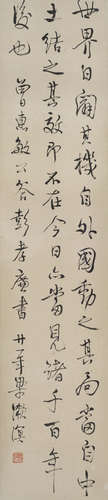 世界日闢其機自外國動之其局當自中
土結之其效即不在今日亦當見諸千百年
後也 曾惠敏公答彭孝廣書 廿一年 梁漱溟